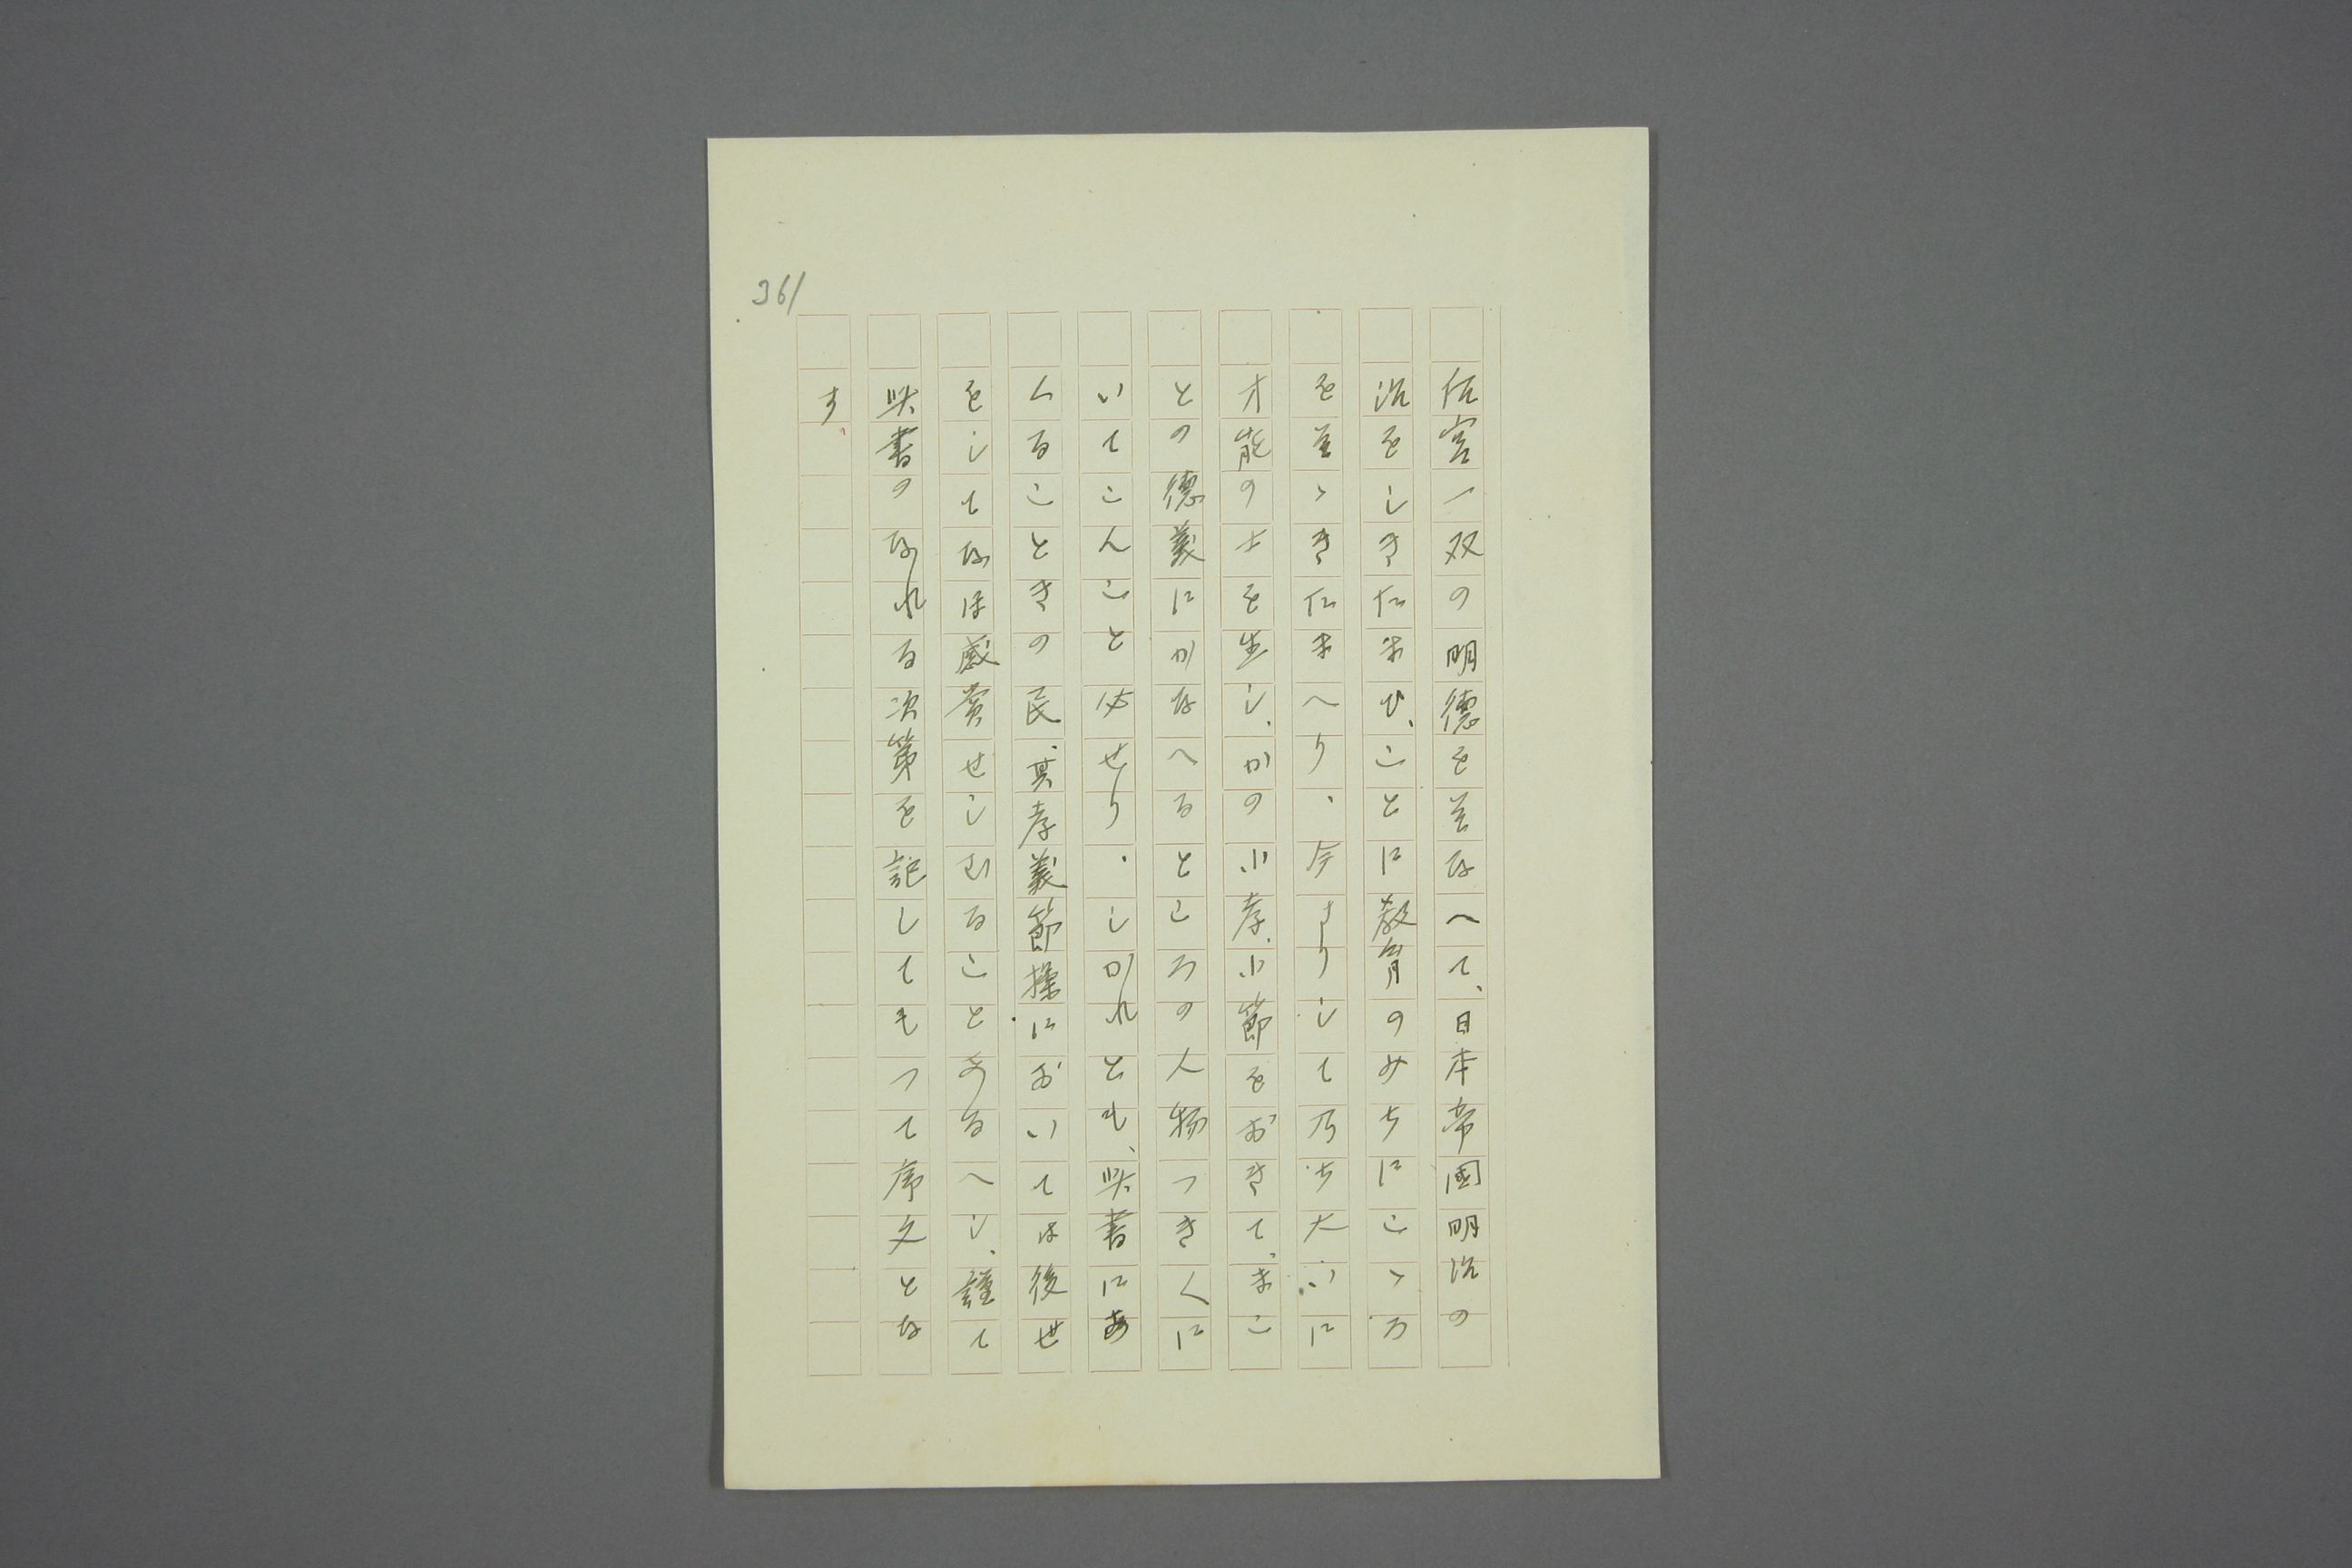 宮一双の明徳をそなへて、日本帝国明治の
治をしきたまひ、ことに教育のみちにこゝろ
をそゝきたまへり、今よりして乃ち大いに
才能の士を生し、かの小孝、小節をおきて、まこ
との徳義にかなへるところの人物つきくに
いてこんこと必せり、しかれとも、此書にあ
くることきの民、其孝義節操においては後世
をしてなほ感賞せしむることあるへし、謹て
此書のなれる次第を記してもつて序文とな
す、
361